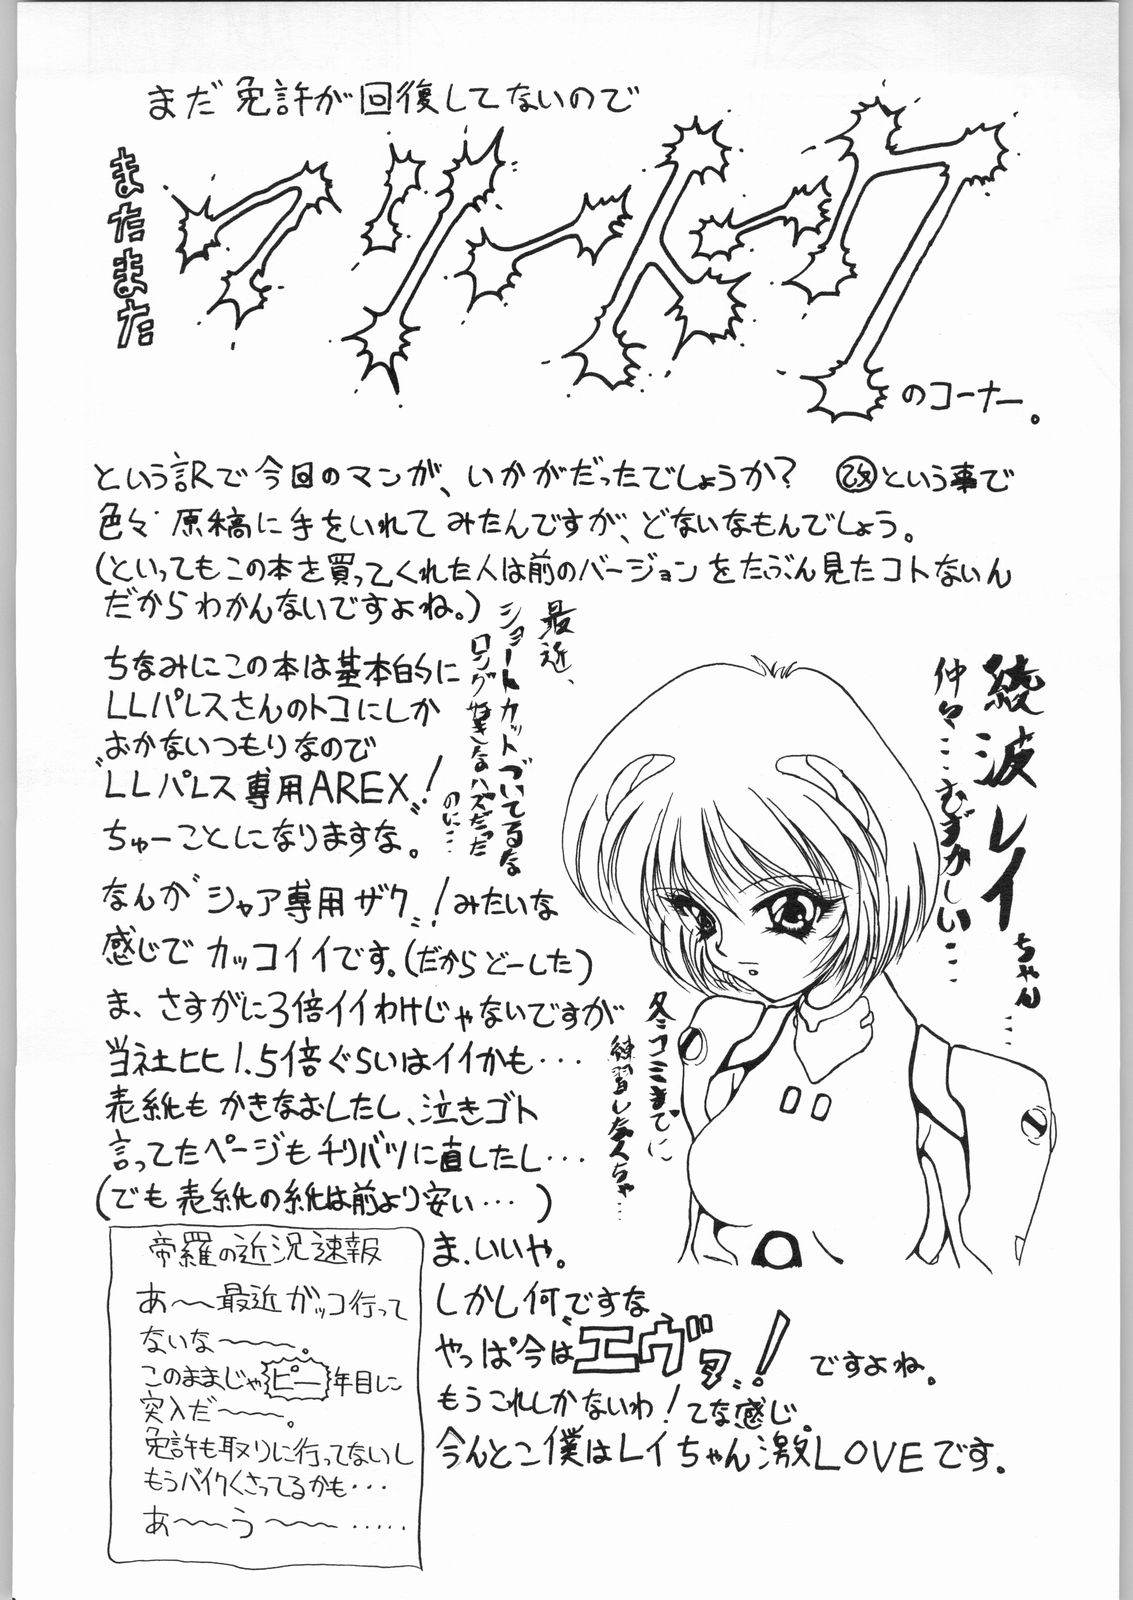 まだ免許が回復してないので
またまた
フリートーク
のコーナー。
という訳で今回のマンガ、いかがだったでしょうか? 改という事で
色々原稿に手をいれてみたんですが、どないなもんでしょう。
(といってもこの本を買ってくれた人は前のバージョンをたぶん見たコトないん
だからわかんないですよね。)
ちなみにこの本は基本的に
LLパレスさんのトコにしか
おかないつもりなので
〝LLパレス専用AREX〟!
ちゅーことになりますな。
なんか〝シャア専用ザク〟!みたいな
感じでカッコイイです。(だからどーした)
ま、さすがに3倍イイわけじゃないですが
当社ヒヒ1.5倍ぐらいはイイかも・・・
表紙もかきなおしたし、泣きゴト
言ってたページもチリバツに直したし・・・
(でも表紙の紙は前より安い・・・)
最近、
ショートカットづいてるな
ロング好きしたのハズだった
のに・・・
綾波レイちゃん・・・
仲々・・・むずかしい・・・
冬コミまでに
練習しなくちゃ・・・
ま、いいや。
しかし何ですな
やっぱ今は〝エヴァ〟!ですよね。
もうこれしかないわ!てな感じ。
今んとこ僕はレイちゃん激LOVEです。
帝羅の近況速報
あ〜〜最近ガッコ行って
ないな〜〜〜。
このままじゃピー年目に
突入だ〜〜〜。
免許も取りに行ってないし
もうバイクくさってるかも・・・
あ〜〜う〜〜〜・・・・・